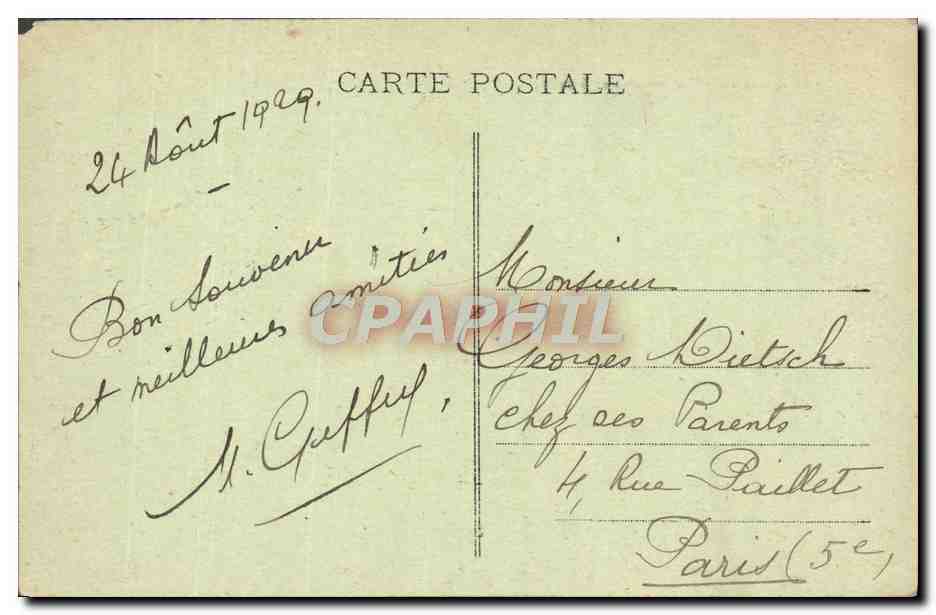 CARTE POSTALE
24 Août 1929.
Bon Souvenir
et meilleures amitiés
Monsieur
Georges Dietsch
chez ses Parents
4, Rue Paillet
Paris (5e)
CPAPHIL